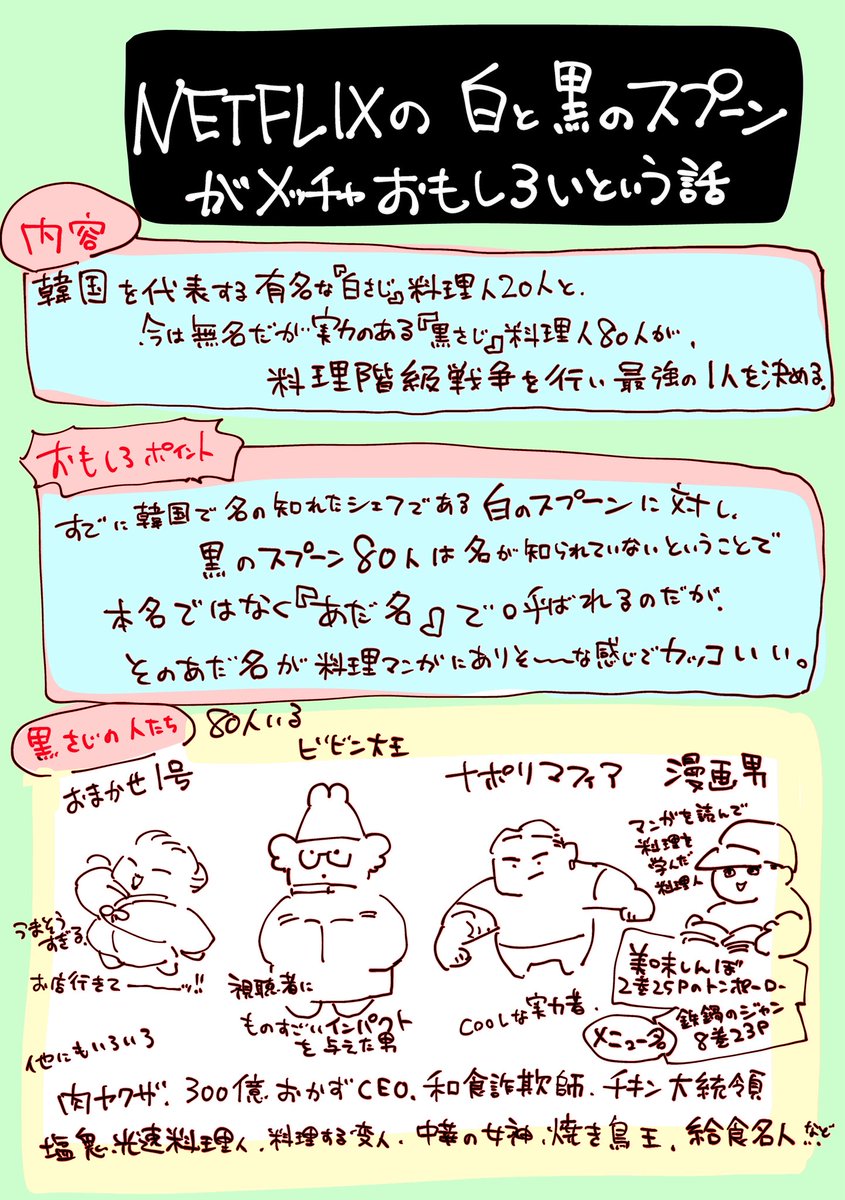 NETFLIXの 白と黒のスプーン
がメッチャおもしろいという話
内容
韓国を代表する有名な『白さじ』料理人20人と、
今は無名だが実力のある『黒さじ』料理人80人が、
料理階級戦争を行い最強の1人を決める。
おもしろポイント
すでに韓国で名の知れたシェフである白のスプーンに対し、
黒のスプーン80人は名が知られていないということで
本名ではなく『あだ名』で呼ばれるのだが、
そのあだ名が料理マンガにありそ〜〜な感じでカッコいい。
黒さじの人たち
80人いる
おまかせ1号
うまそう
すぎる。
お店行きてーーーッ!!
ビビン大王
視聴者に
ものすごいインパクト
を与えた男
ナポリマフィア
COOLな実力者。
漫画男
マンガを読んで
料理を
学んだ
料理人
美味しんぼ
2巻25Pのトンポーロー
鉄鍋のジャン
8巻23P
メニュー名
他にもいろいろ
肉ヤクザ、300億おかずCEO、和食詐欺師、チキン大統領
塩鬼、光速料理人、料理する変人、中華の女神、焼き鳥王、給食名人など